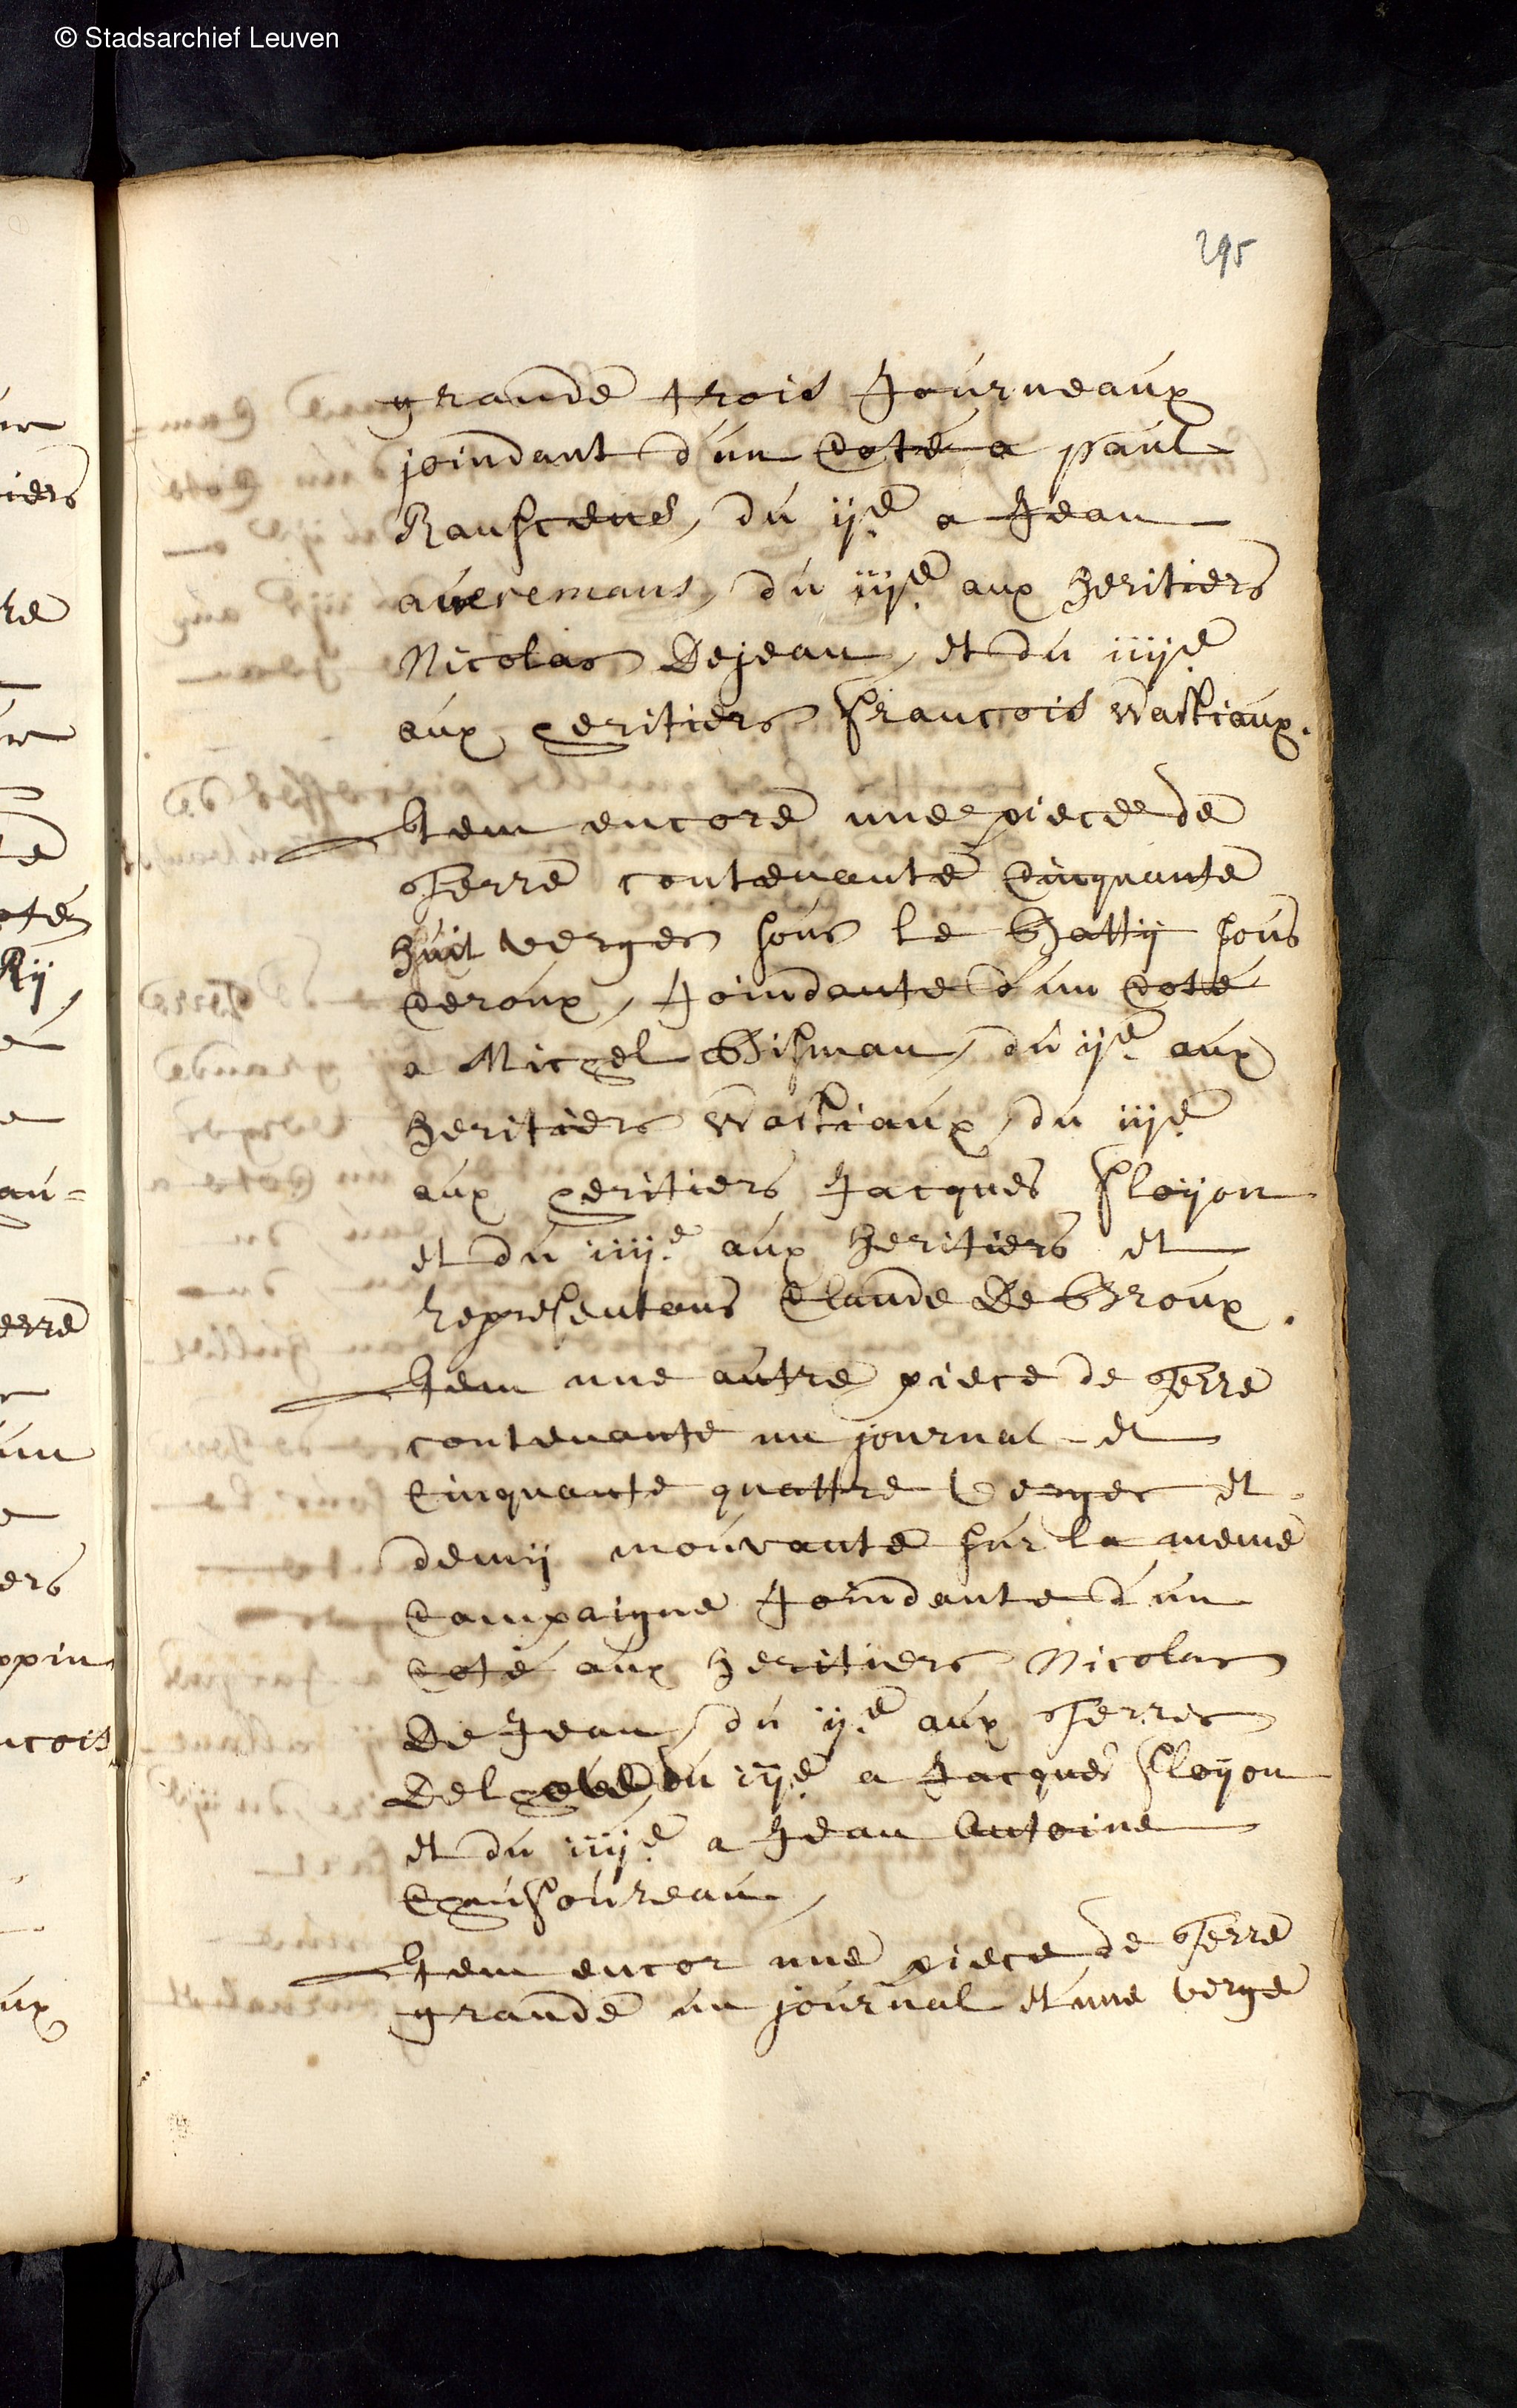 © Stadsarchief Leuven
295
grande trois Journeaux
joindant d'un Coté a paul
Rauscens, du ije a Jean
averemans, du iije aux heritiers
Nicolas Dejean, et du iiije
aux heritiers francois wastiaux.
Item encore une piece de
Terre contenante Cinquante
huit verges sous le Hatty sous
Ceroux, Joindante d'un Coté
a Michel Gisman, du ije aux
heritiers wastiaux, du iije
aux heritiers Jacques floyon
et du iiije aux heritiers et
representans Claude De Groux.
Item une autre piece de Terre
contenante un journal et
Cinquante quattre Verges et
demij mouvante sur la meme
Campaigne Joindante d'un
Coté aux heritiers Nicolas
De Jean, du ije aux Terres
du iije a Jacques floyon
et du iiije a Jean Antoine
Chausoureau,
Item encor une piece de Terre
grande un journal et une verge